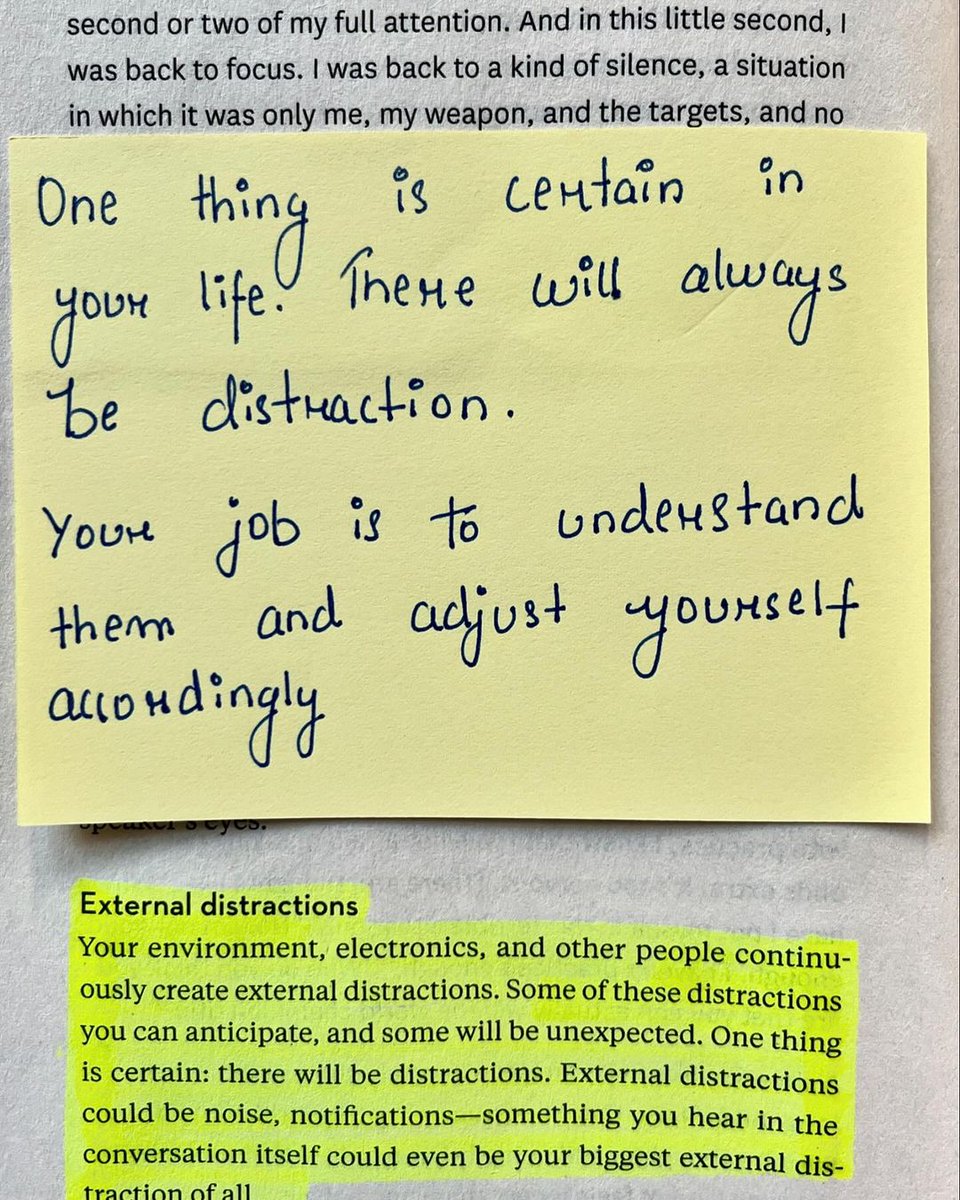 second or two of my full attention. And in this little second, I
was back to focus. I was back to a kind of silence, a situation
in which it was only me, my weapon, and the targets, and no
One thing is certain in
your life. There will always
be distraction.
Your job is to understand
them and adjust yourself
accordingly
speaker's eyes.
External distractions
Your environment, electronics, and other people continu-
ously create external distractions. Some of these distractions
you can anticipate, and some will be unexpected. One thing
is certain: there will be distractions. External distractions
could be noise, notifications—something you hear in the
conversation itself could even be your biggest external dis-
traction of all